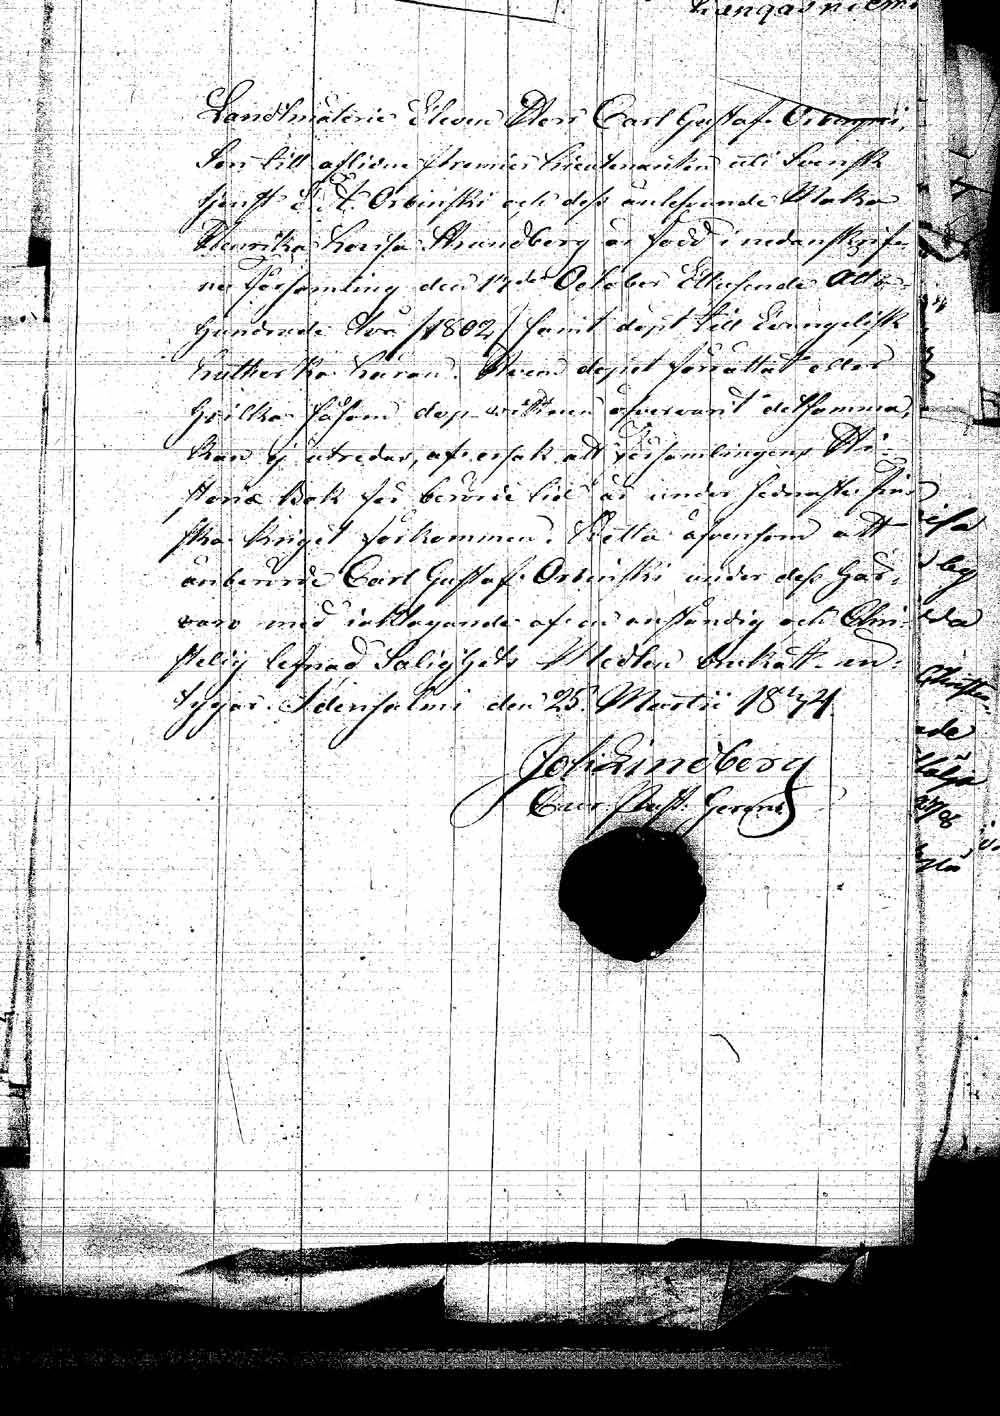 Kangasniemi
Landtmäterie Eleven Herr Carl Gustaf Orbinski,
Son till aflidne Premier Lieutenanten uti Svensk
tjenst Orbinski och dess äntlefvande Maka
Henrika Lovisa Strandberg är född i nedanskrif-
ne Församling den 17de October Ettusende Adto-
hundrade två /1802/ samt döpt till Evangelisk
Lutherska Läran. Hvem dopet förrättat eller
hvilka såsom dop vittnen öfvervarit detsamma,
kan ej utredas, af orsak att Församlingens Hi-
storiæ Bok för berörde tid är under sednaste Fin-
ska kriget förkommen. Detta äfvensom att
anberörde Carl Gustaf Orbinski under dess här-
varo med iakttagande af en anständig och Chri-
stelig lefnad Salighets Medlen bruckat in-
tygar. Idensalmi den 25 Martii 1824.
Joh: Lindberg
Past: Gerens